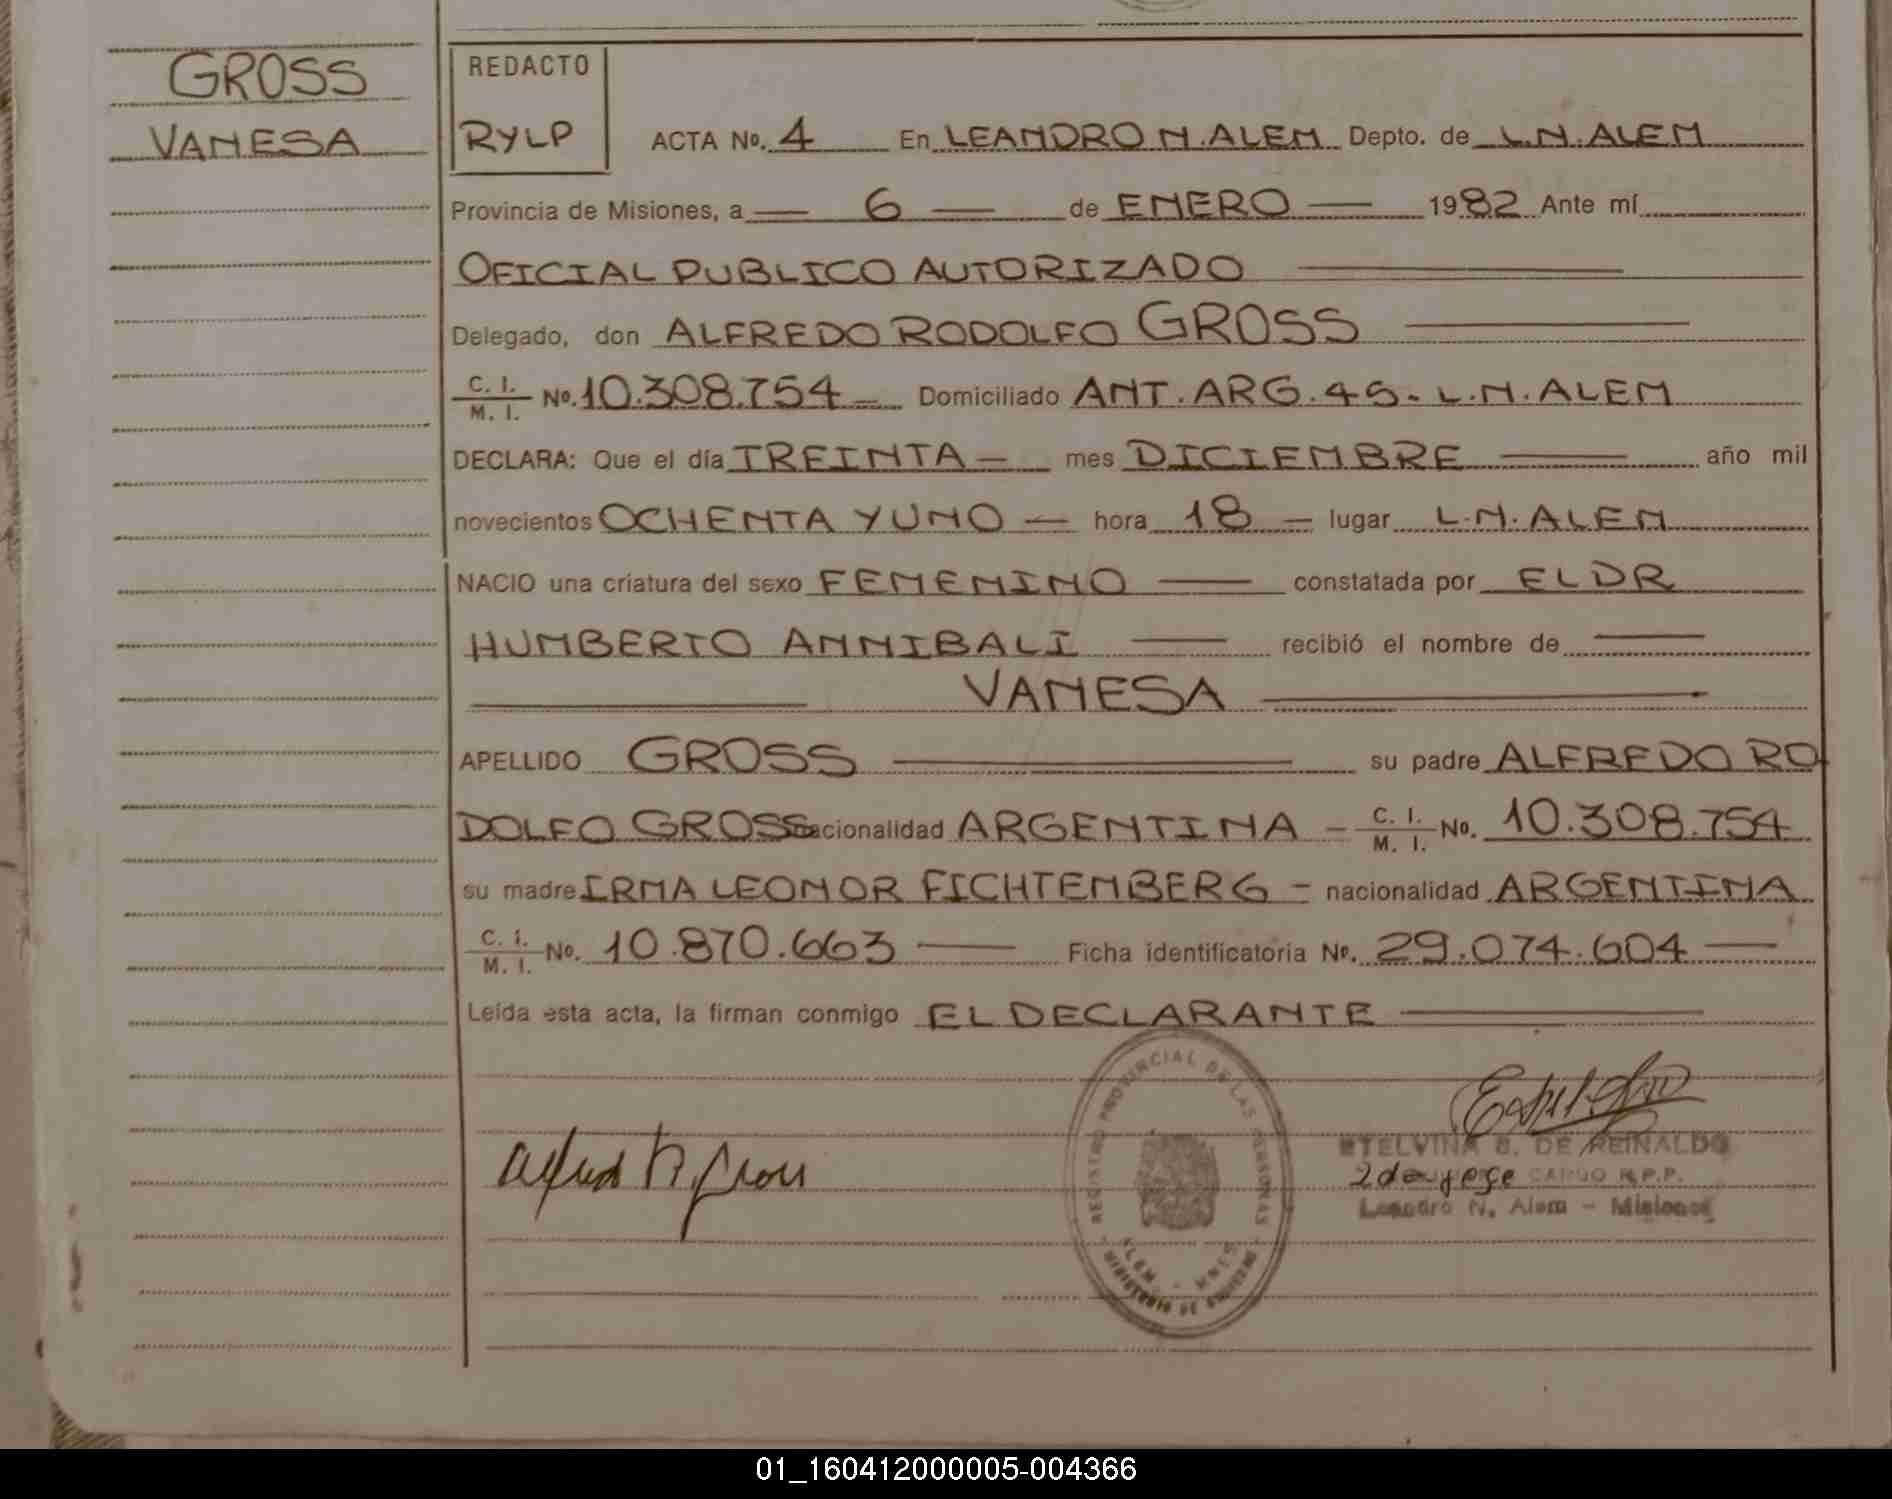 GROSS
VANESA
REDACTO
RYLP
ACTA No. 4 En LEANDRO N. ALEM Depto. de L.N. ALEM
Provincia de Misiones, a 6 de ENERO 1982 Ante mí
OFICIAL PUBLICO AUTORIZADO
Delegado, don ALFREDO RODOLFO GROSS
C. I. M. I. No. 10.308.754 Domiciliado ANT. ARG. 45 - L.N. ALEM
DECLARA: Que el día TREINTA mes DICIEMBRE año mil
novecientos OCHENTA Y UNO hora 18 lugar L.N. ALEM
NACIO una criatura del sexo FEMENINO constatada por EL DR
HUMBERTO ANNIBALI recibió el nombre de
VANESA
APELLIDO GROSS su padre ALFREDO RO
DOLFO GROSS nacionalidad ARGENTINA C. I. M. I. No. 10.308.754
su madre IRMA LEONOR FICHTENBERG - nacionalidad ARGENTINA
C. I. M. I. No. 10.870.663 Ficha identificatoria No. 29.074.604
Leída esta acta, la firman conmigo EL DECLARANTE
Alfred R. Gross
REGISTRO PROVINCIAL DE LAS PERSONAS
ALEM - MNES
MINISTERIO DE GOBIERNO
ETELVINA B. DE REINALDO
2da jefe CARGO R.P.P.
Leandro N. Alem - Misiones
01_160412000005-004366